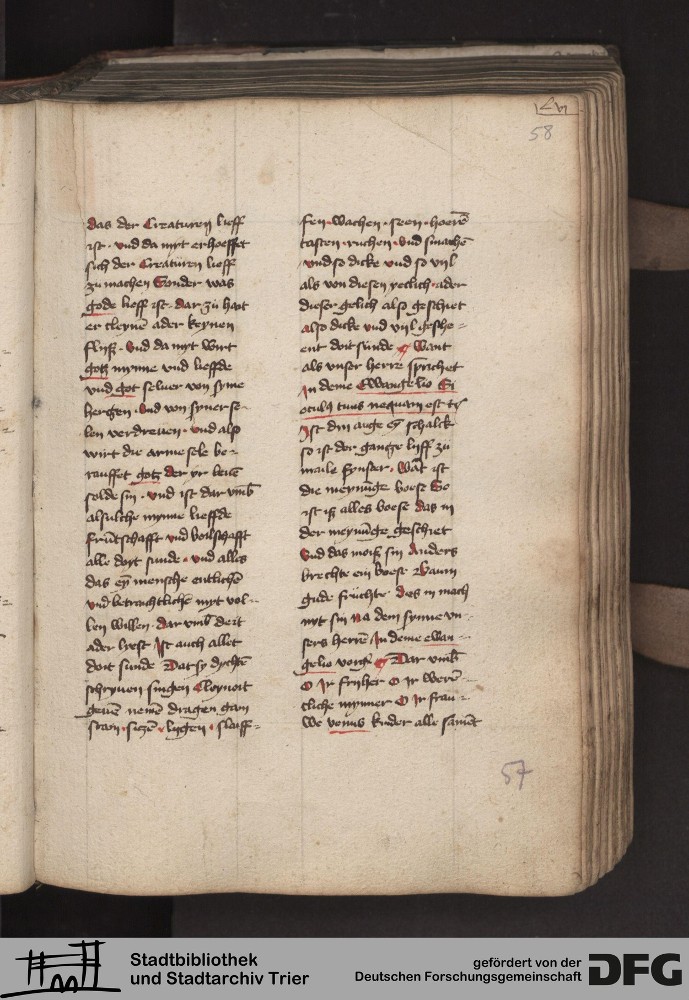 lvj
58
das der Creaturen lieff
ist · vnd da myt erhoeffet
sich der Creaturen lieff
zu machen Sonder was
gode lieff ist · dar zu hait
er cleynē ader keynen
flyß · Vnd da myt wirt
gotz mynne vnd lieffde
vnd got seluer von syme
hertzen · Vnd von syner se-
len verdreuen · vnd also
wirt die arme sele be-
rauffet gotz der yr
solde sin · vnd ist dar vmb
alsulche mynne lieffde
fruntschafft vnd
alle doyt sunde · vnd alles
das eyn mensche entlichē
vnd betrachtlichē myt vol-
len willen · dar vmb deit
ader leest Ist auch allet
doit sunde Dat sy dychtē
schryuen singen
geuē nemē dragen gain
stain · sitzē · lygen · slaiff-
fen · wachen · seen · hoerē
tasten · ruchen · vnd smachē
vnd so dicke vnd so vyl
als von diesen yeclich · ader
dieser gelich also geschiet
also dicke vnd vyl geshe-
ent doit sunde Want
als vnser herre sprichet
In deme Ewangelio Si
oculus tuus nequam est
Ist din auge schalck
so ist der gantze lyff zu
maile fynster · Wāt ist
die meynūge boese So
ist iß alles boese das in
der meynūge geschiet
Vnd das moiß sin Anders
brechte ein boese Baum
gude früchte · Des in mach
nyt sin na dem synne vn-
sers herrē In deme ewan-
gelio Dar vmb
O Ir fryher O Ir werē-
tliche mynner O Ir frau-
we venus kinder alle samēt
57
Stadtbibliothek
und Stadtarchiv Trier
gefördert von der
Deutschen Forschungsgemeinschaft
DFG